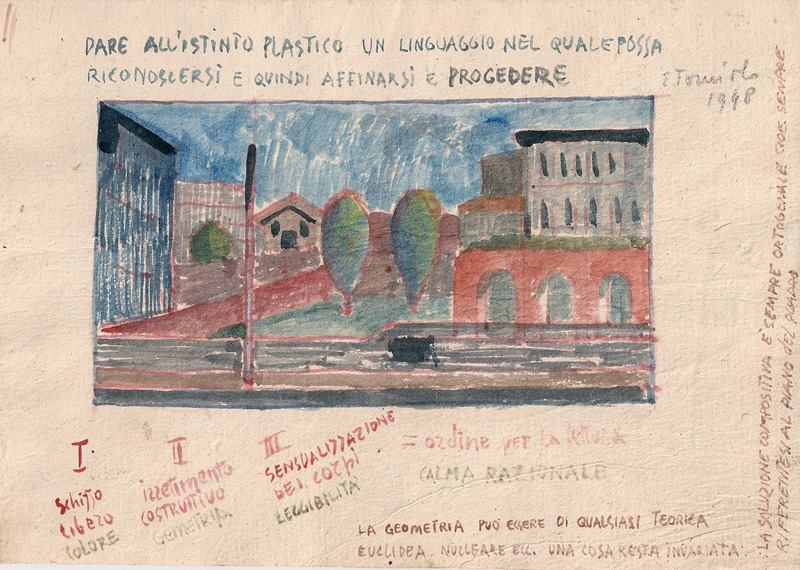 DARE ALL'ISTINTO PLASTICO UN LINGUAGGIO NEL QUALE POSSA
RICONOSCERSI E QUINDI AFFINARSI E PROCEDERE
1998
I.
SCHIZZO
LIBERO
COLORE
II
IRRETIMENTO
COSTRUTTIVO
GEOMETRIA
III
SENSUALIZZAZIONE
DEI CORPI
LEGGIBILITA'
= ordine per la lettura
CALMA RAZIONALE
LA GEOMETRIA PUO' ESSERE DI QUALSIASI TEORICA
EUCLIDEA NUCLEARE ECC. UNA COSA RESTA INVARIATA:
LA SALUZIONE COMPOSITIVA E' SEMPRE ORTOGONALE CIOE' SEMPRE
RIFERENTESI AL PIANO DEL QUADRO